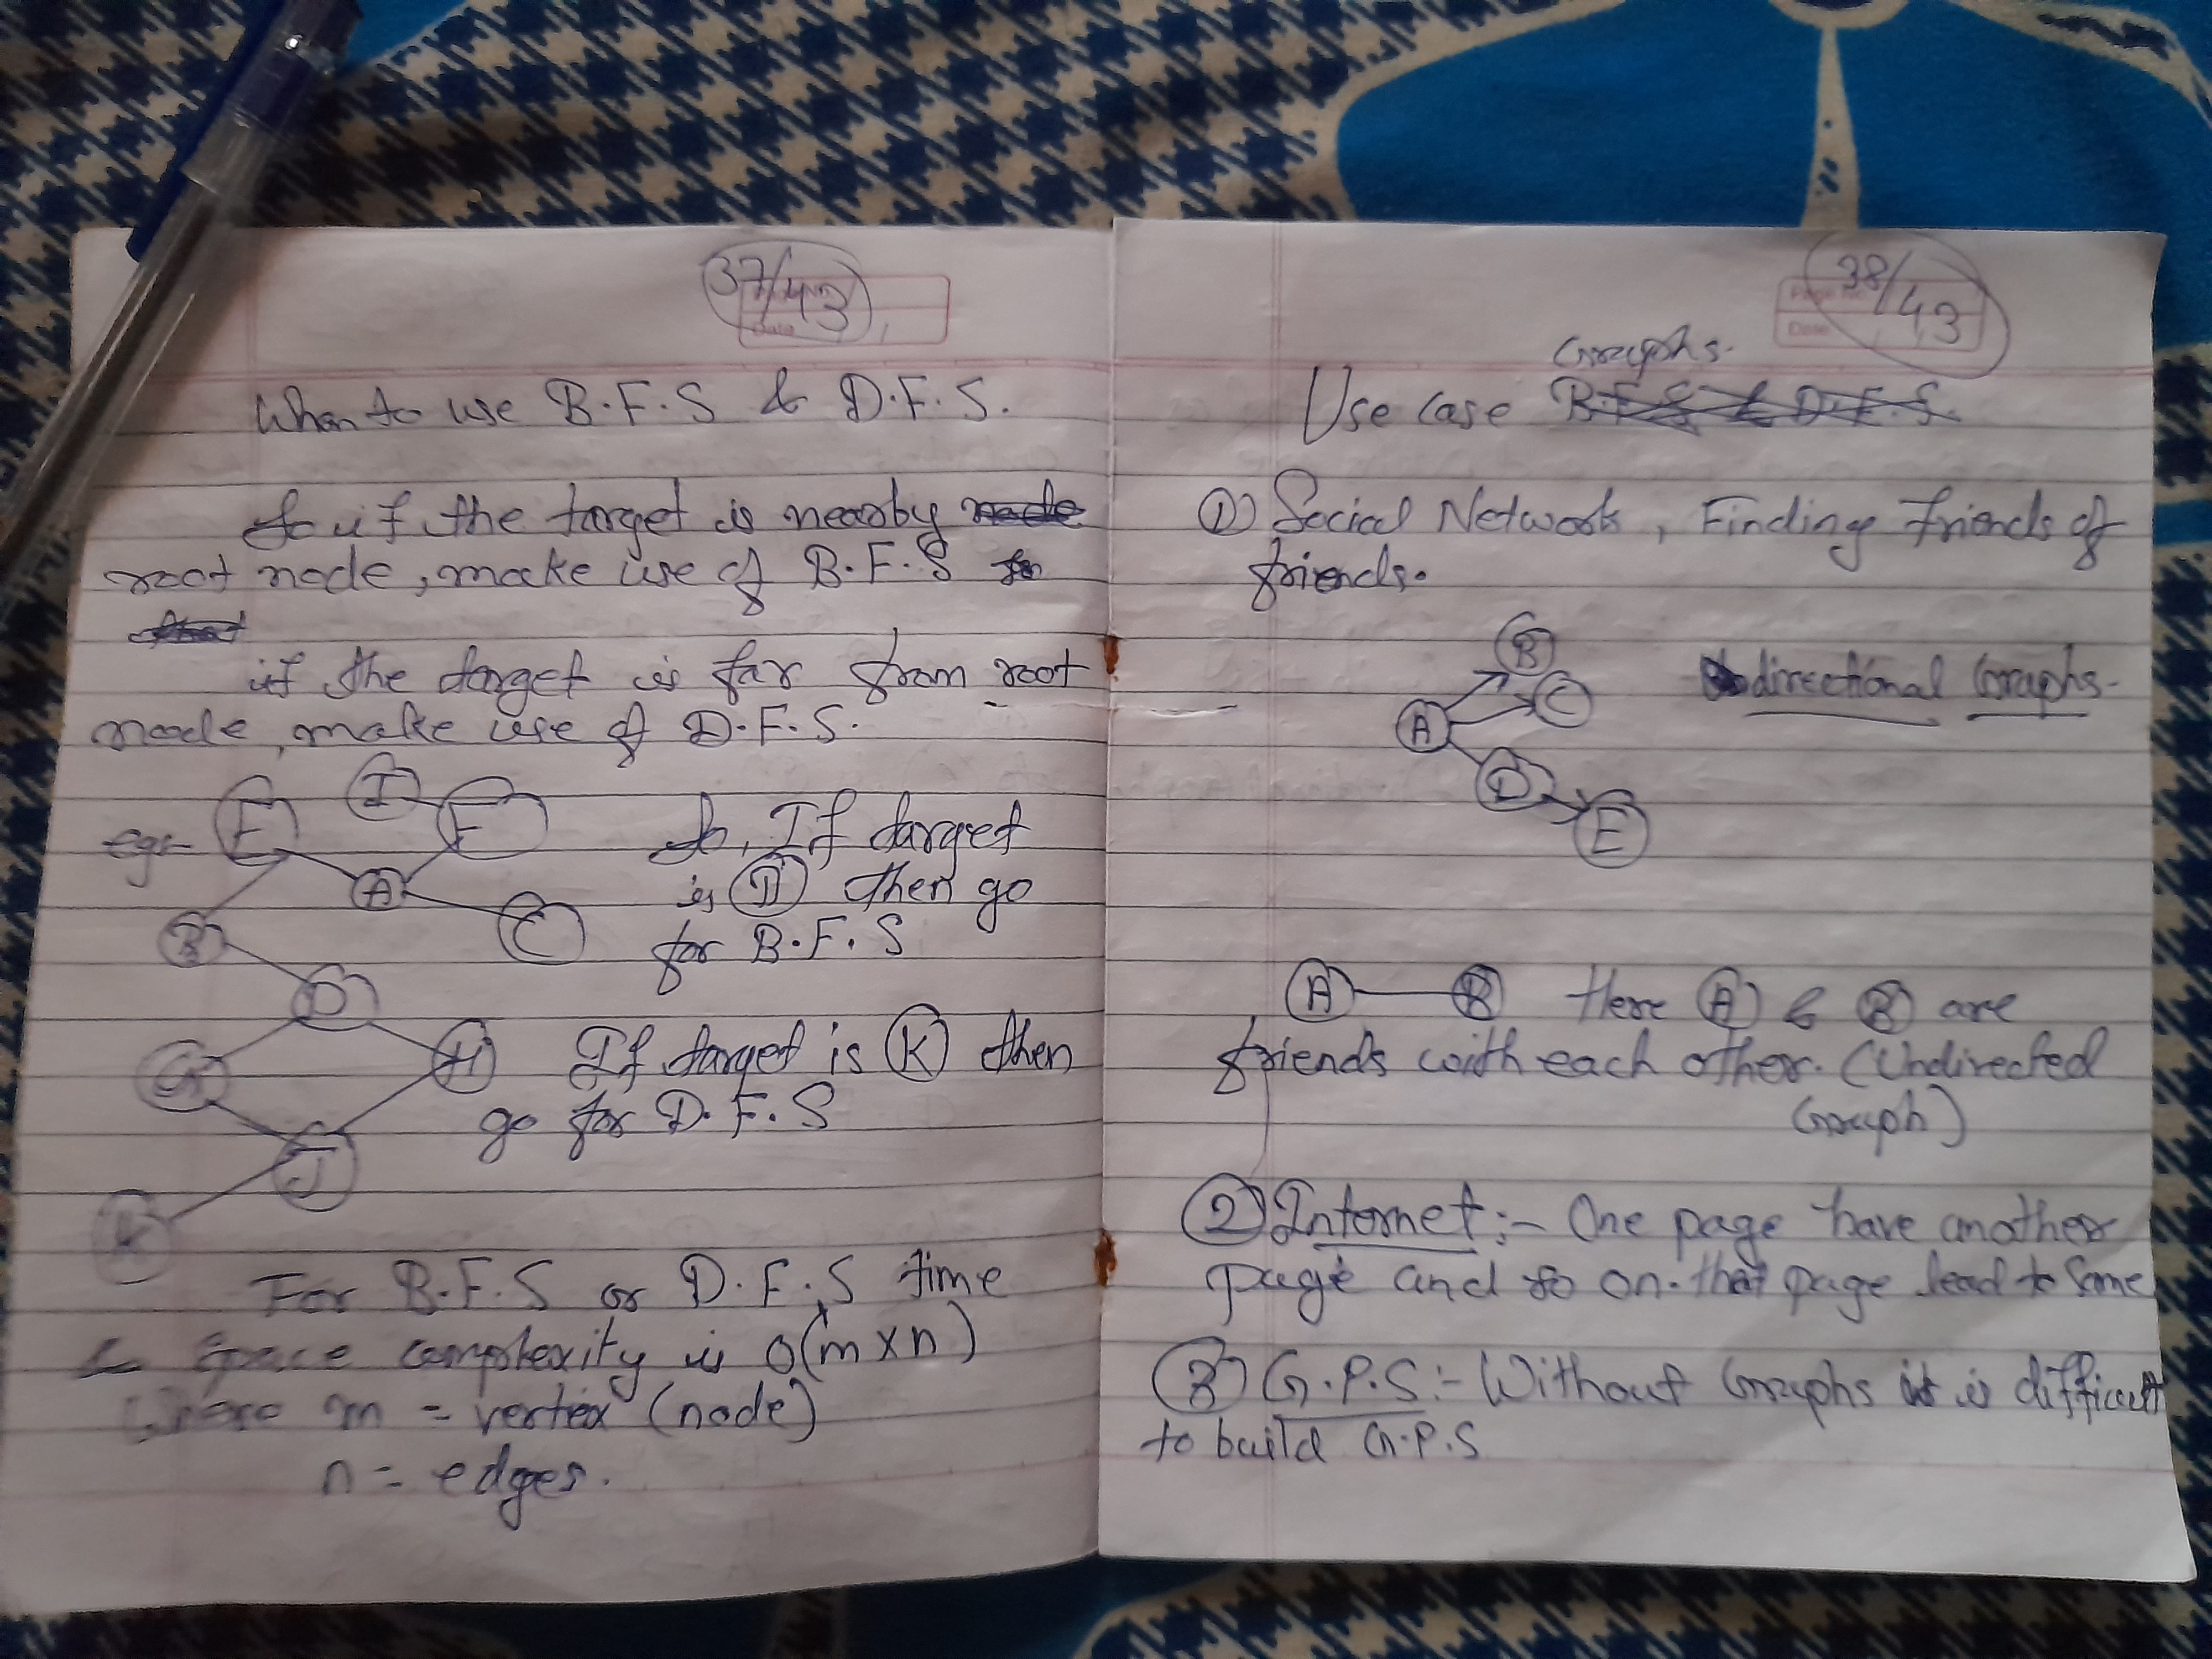 37/43
When to use B.F.S & D.F.S.
if the target is nearby
root node, make use of B.F.S
if the target is far from root
node, make use of D.F.S.
eg:-
I
A
C
B
D
G
H
J
K
So, If target
is then go
for B.F.S
If target is K then
go for D.F.S
For B.F.S or D.F.S time
& space complexity is O(m x n)
where m = vertex (node)
n = edges.
38/43
Page No
Date
Graphs.
Use case B.F.S & D.F.S.
① Social Network, Finding friends of
friends.
B
C
A
D
E
directional Graphs.
A B Here A & B are
friends with each other. (Undirected
Graph)
② Internet:- One page have another
page and so on. that page lead to some
③ G.P.S:- Without Graphs it is difficult
to build G.P.S